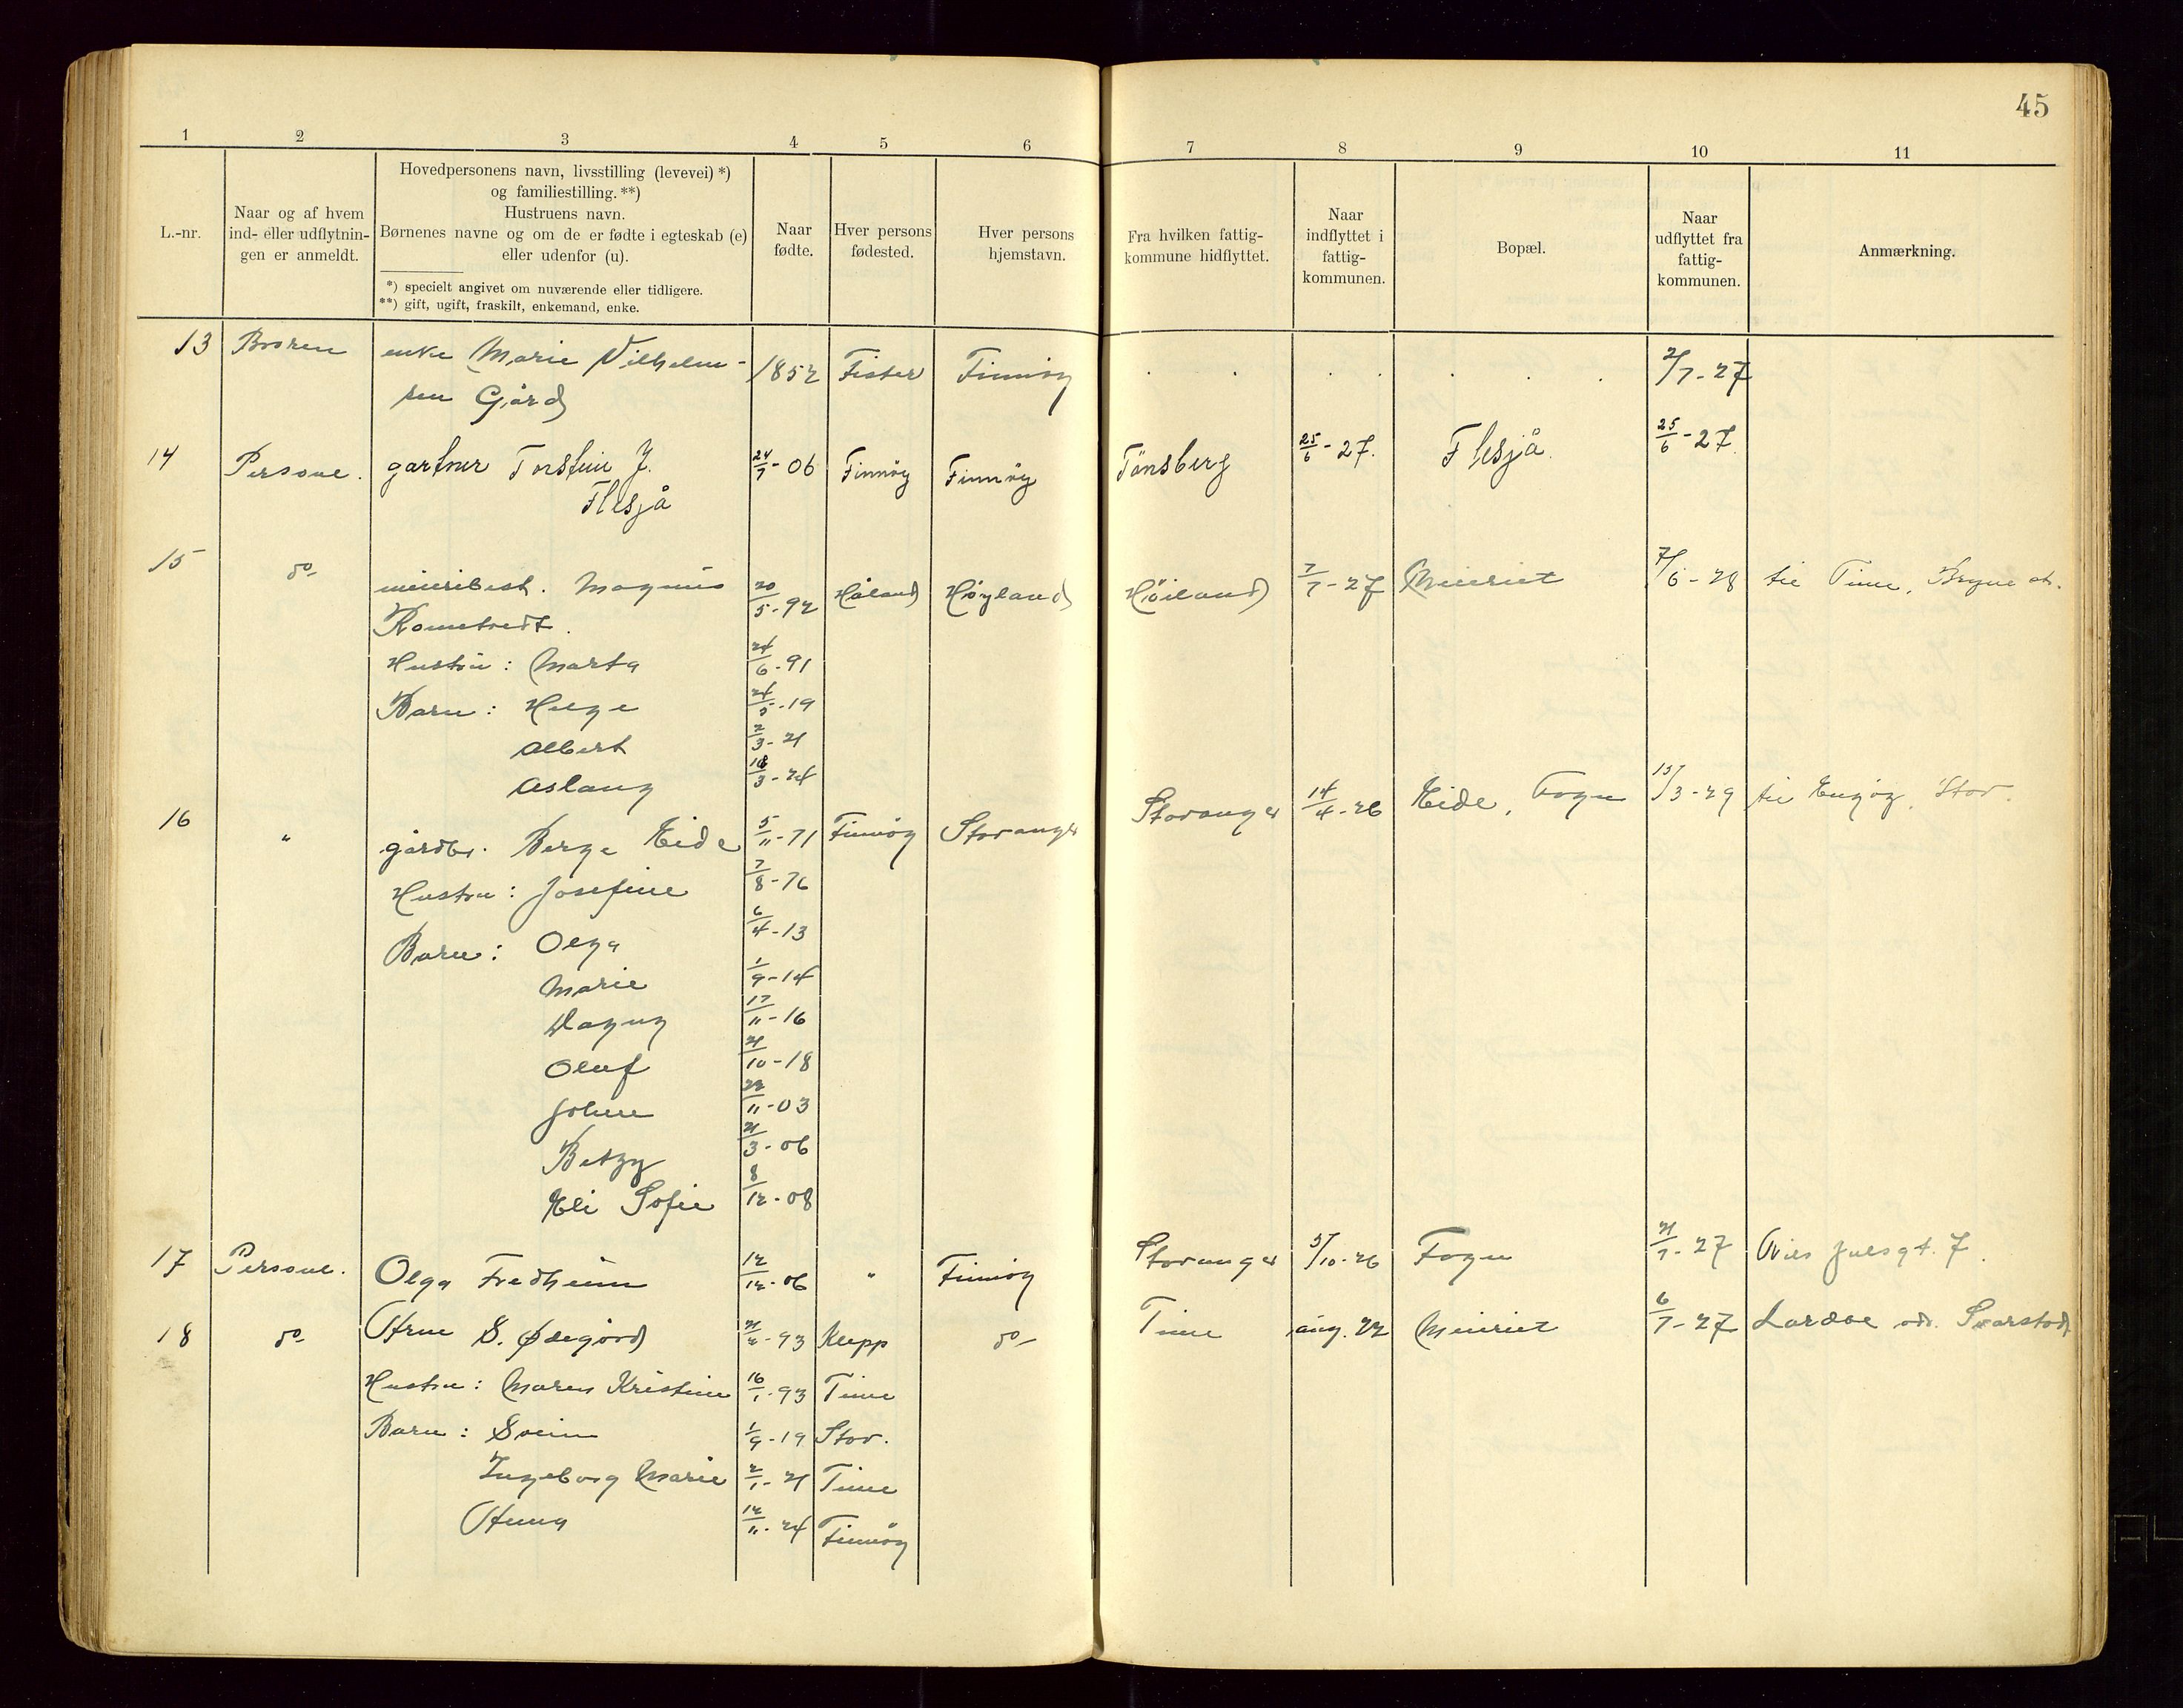 45
1 2 3 4 5 6 7 8 9 10 11
L.-nr.
Naar og af hvem
ind- eller udflytnin-
gen er anmeldt.
Hovedpersonens navn, livsstilling (levevei) *)
og familiestilling. **)
Hustruens navn.
Børnenes navne og om de er fødte i egteskab (e)
eller udenfor (u).
*) specielt angivet om nuværende eller tidligere.
**) gift, ugift, fraskilt, enkemand, enke.
Naar
fødte.
Hver persons
fødested.
Hver persons
hjemstavn.
Fra hvilken fattig-
kommune hidflyttet.
Naar
indflyttet i
fattig-
kommunen.
Bopæl.
Naar
udflyttet fra
fattig-
kommunen.
Anmærkning.
13 Broren enke Marie Vilhelm- 1852 Fister Finnöy . . . . . . . 2/7-27
sen Gård
14 Persone. gartner Torstein J. 24/7-06 Finnöy Finnöy Tönsberg 25/6-27. Flesjå. 25/6-27
Flesjå
15 do meieribest. Magnus 20/5-92 Håland Höyland Höiland 7/7-27 Meieriet 7/6-28 til Time, Bryne st.
Hustru: Marta 24/6-91
Barn: Helge 24/5-19
Albert 2/3-21
Aslaug 18/3-24
16 " gårdbr. Berge Eide 5/11-71 Finnöy Stavanger Stavanger 14/4-26 Eide, Fogn 15/3-29 til Engöy, Stav.
Hustru: Josefine 7/8-76
Barn: Olga 6/4-13
Marie 1/9-14
Dagny 17/11-16
Oluf 21/10-18
Johan 22/11-03
Betzy 21/3-06
Eli Sofie 8/12-08
17 Persone. Olga Fredheim 12/12-06 " Finnöy Stavanger 5/10-26 Fogn 21/7-27 Nils Juelsgt. 7.
18 do Arne S. Ødegård 21/2-93 Klepp do Time aug. 22 Meieriet 6/7-27 Lardal
Hustru: Maren Kristine 16/1-93 Time
Barn: Svein 1/9-19 Stav.
Ingeborg Marie 2/1-21 Time
Anna 12/11-24 Finnöy